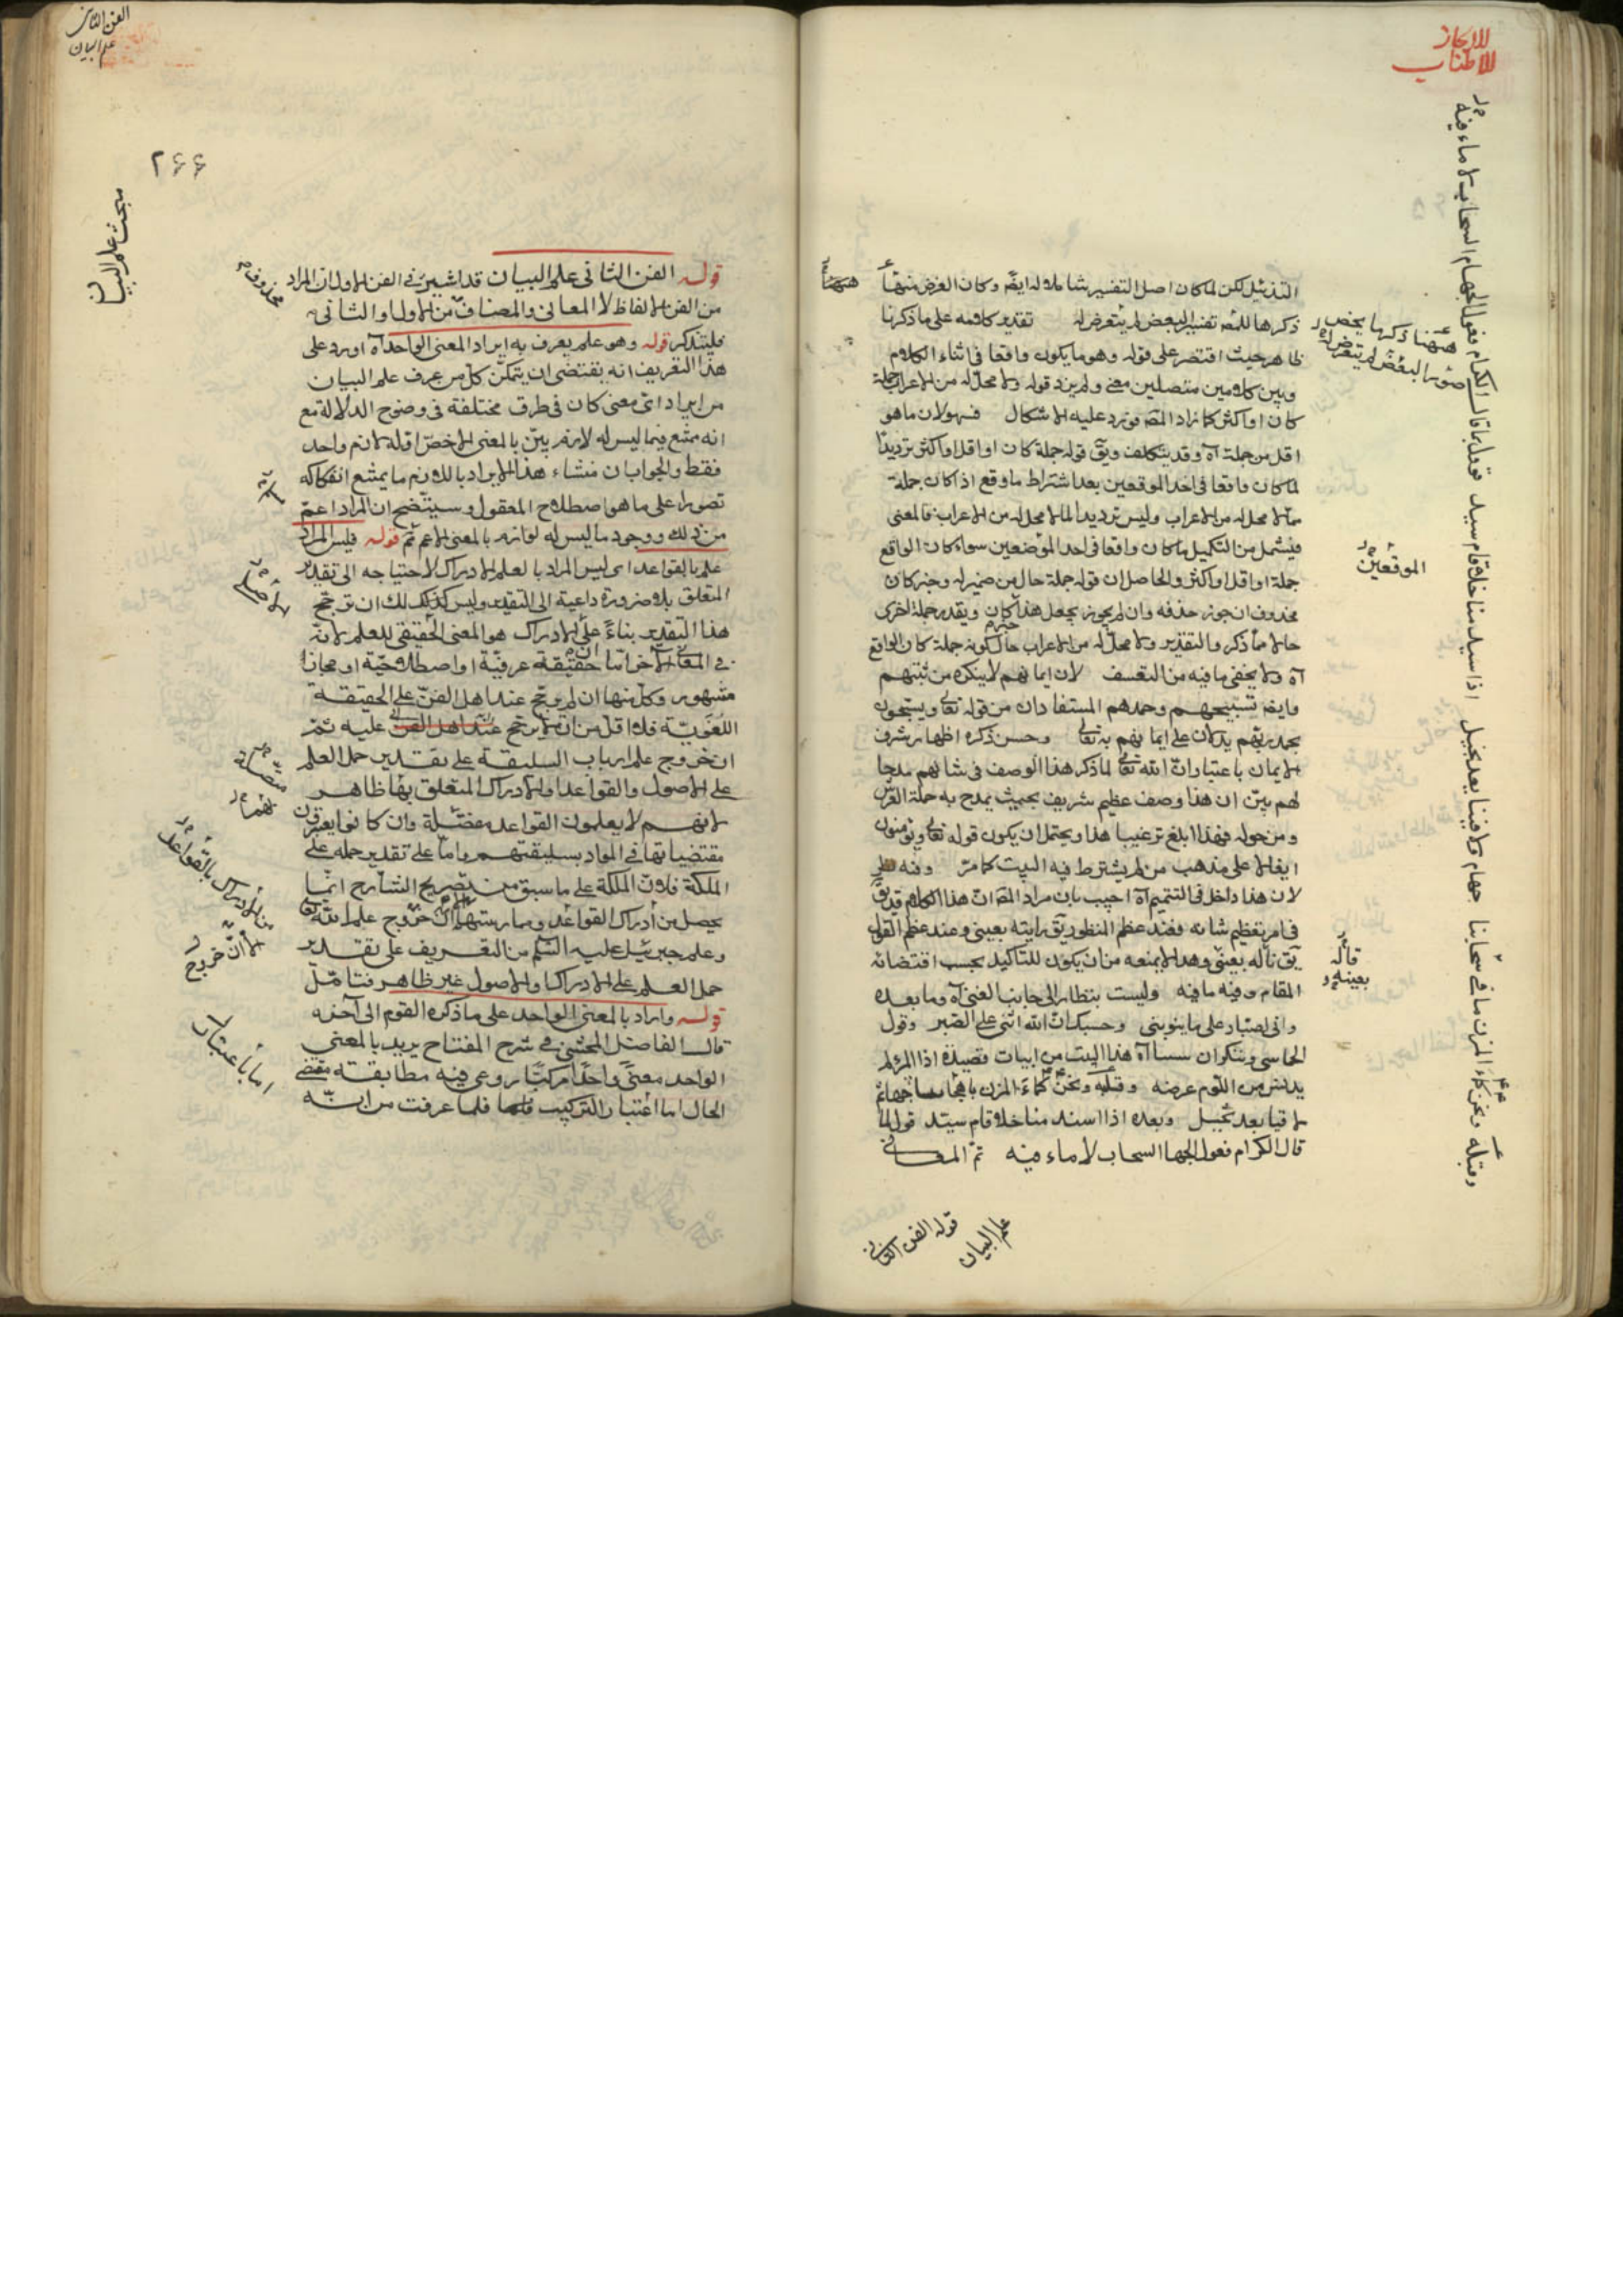 للايجاز
للاطناب
التذييل لكن لما كان اصل التفسير شاملا له ايضا وكان الغرض منها
ذكرها للمص تفسير البعض لم يتعرض له تقدير كلامه على ما ذكرنا
ظاهر حيث اقتصر على قوله وهو ما يكون واقعا في اثناء الكلام
وبين كلامين متصلين معنى ولم يزد قوله ولا محل له من الاعراب جملة
كان او اكثر كما زاد المص فيرد عليه الاشكال فهو لان ما هو
اقل من جملة آه وقد يتكلف ويق قوله جملة كان او اقل او اكثر ترديدا
لما كان واقعا في احد الموقعين بعد اشتراط ما وقع اذا كان جملة
مما لا محل له من الاعراب وليس ترديدا لما لا محل له من الاعراب فالمعنى
فيشمل من التكميل ما كان واقعا في احد الموضعين سواء كان الواقع
جملة او اقل او اكثر والحاصل ان قوله جملة حال من ضميره وخبر كان
محذوف ان جوز حذفه وان لم يجوز يجعل هذا خبر كان ويقدر جملة اخرى
حالا مما ذكر والتقدير ولا محل له من الاعراب حال كونه جملة كان الواقع
آه ولا يخفى ما فيه من التعسف لان ايمانهم لا ينكره من يثبتهم
وايضا تسبيحهم وحمدهم المستفادان من قوله تعالى ويسبحون
بحمد ربهم يدلان على ايمانهم به تعالى وحسن ذكره اظهار شرف
الايمان باعتبار ان الله تعالى لما ذكر هذا الوصف في شانهم مدحا
لهم بين ان هذا وصف عظيم شريف بحيث يمدح به حملة العرش
ومن حوله فهذا ابلغ ترغيبا هذا ويحتمل ان يكون قوله تعالى ويؤمنون
ايغالا على مذهب من لم يشترط فيه البيت كما مر وفيه نظر
لان هذا داخل في التتميم آه اجيب بان مراد المص ان هذا الكلام قد يق
في امر بتعظيم شانه فعند عظم المنظور يق رايته بعيني وعند عظم القول
يق قاله بعينه وهذا لا يمنعه من ان يكون للتاكيد بحسب اقتضائه
المقام وفيه ما فيه وليست بنظار الى جانب الغنى آه وما بعده
واني لصبار على ما ينوبني وحسبك ان الله اثنى على الصبر وقول
الحماسي وننكر ان شئنا آه هذا البيت من ابيات قصيدة اذا المرء لم
يدنس من اللؤم عرضه وقبله ونحن كماء المزن
وبعده اذا سيد منا خلا قام سيد قول لما
قال الكرام فعول الجهام السحاب لا ماء فيه تم المعاني
قوله الفن الثاني
علم البيان
ههنا
ههنا ذكرها بخصـ
صور البعض لم يتعرض له
الموقعين
قاله
بعينه
وقبله ونحن كماء المزن ما في سحابنا جهام ولا فينا يعد بخيل اذا سيد منا خلا قام سيد قوول بما قال الكرام فعول الجهام السحاب لا ماء فيه
الفن الثاني
علم البيان
۲۶۶
مبحث علم البيان
قوله الفن الثاني علم البيان قد اشير في الفن الاول ان المراد
من الفن الالفاظ لا المعاني والمضاف من الاول والثاني
فليتذكر قوله وهو علم يعرف به ايراد المعنى الواحد آه اورد على
هذا التعريف انه يقتضي ان يتمكن كل من عرف علم البيان
من ايراد اي معنى كان في طرق مختلفة في وضوح الدلالة مع
انه ممتنع فيما ليس له لازم بين بالمعنى الاخص او له لازم واحد
فقط والجواب ان منشاء هذا الايراد باللازم ما يمتنع انفكاكه
تصورا على ما هو اصطلاح المعقول وسيتضح ان المراد اعم
من ذلك ووجود ما ليس له لوازم بالمعنى الاعم ثم قوله فليس المراد
علم بالقواعد اى ليس المراد بالعلم الادراك لاحتياجه الى تقدير
المتعلق بلا ضرورة داعية الى التقدير وليس كذلك لك ان ترجح
هذا التقدير بناء على ان الادراك هو المعنى الحقيقي للعلم لانه
في المعاني الاخر اما حقيقة عرفية او اصطلاحية او مجاز
مشهور وكل منها ان لم يرجح عند اهل الفن على الحقيقة
اللغوية فلا اقل من ان لا يرجح عليه ثم
ان خروج علم ارباب السليقة على تقدير حمل العلم
على الاصول والقواعد او الادراك المتعلق بها ظاهر
لانهم لا يعلمون القواعد مفصلة وان كانوا يعرفون
مقتضياتها في المواد بسليقتهم واما على تقدير حمله على
الملكة فلان الملكة على ما سبق من تصريح الشارح انما
يحصل من ادراك القواعد وممارستها ثم ان خروج علم الله تعالى
وعلم جبرئيل عليه السلم من التعريف على تقدير
حمل العلم على الادراك او الاصول غير ظاهر فتامل
قوله واراد بالمعنى الواحد على ما ذكره القوم الى آخره
قال الفاضل المحشي في شرح المفتاح يريد بالمعنى
الواحد معنى واحدا مركبا روعي فيه مطابقته مقتضى
الحال اما اعتبار التركيب فلما عرفت من انه
محذوف
متصلة
من الادراك بالقواعد
لا ان خروج
اما باعتبار